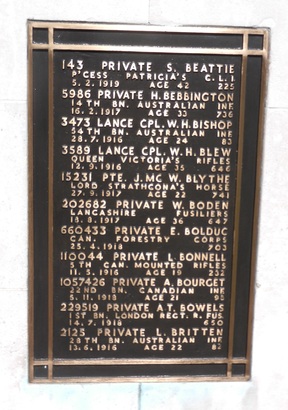 143 PRIVATE S. BEATTIE
P'CESS PATRICIA'S C.L.I.
5.2.1919 AGE 42 225
5986 PRIVATE H. BEBBINGTON
14TH BN. AUSTRALIAN INF
16.2.1917 AGE 33 736
3473 LANCE CPL. W.H. BISHOP
54TH BN. AUSTRALIAN INF
28.7.1916 AGE 24 83
3589 LANCE CPL. W.H. BLEW
QUEEN VICTORIA'S RIFLES
12.9.1916 AGE 35 646
15231 PTE. J. MC W. BLYTHE
LORD STRATHCONA'S HORSE
27.9.1917 AGE 22 741
202682 PRIVATE W. BODEN
LANCASHIRE FUSILIERS
18.8.1917 AGE 36 647
660433 PRIVATE E. BOLDUC
CAN. FORESTRY CORPS
25.4.1918 703
110044 PRIVATE L. BONNELL
5TH CAN. MOUNTED RIFLES
11.5.1916 AGE 19 252
1057426 PRIVATE A. BOURGET
22ND BN. CANADIAN INF
5.11.1918 AGE 21 95
229519 PRIVATE A.T. BOWELS
1ST BN. LONDON RECT. R. FUS.
14.7.1918 650
2125 PRIVATE L. BRITTEN
28TH BN. AUSTRALIAN INF
13.6.1916 AGE 22